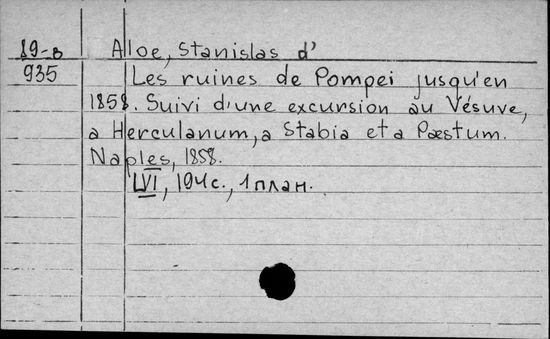 89-в Aloe, Stanislas d'
935 Les ruines de Pompei jusqu'en
1858. Suivi d'une excursion au Vésuve,
a Herculanum, a Stabia et a Pæstum.
Naples, 1858.
LVI, 194 с., 1 план.